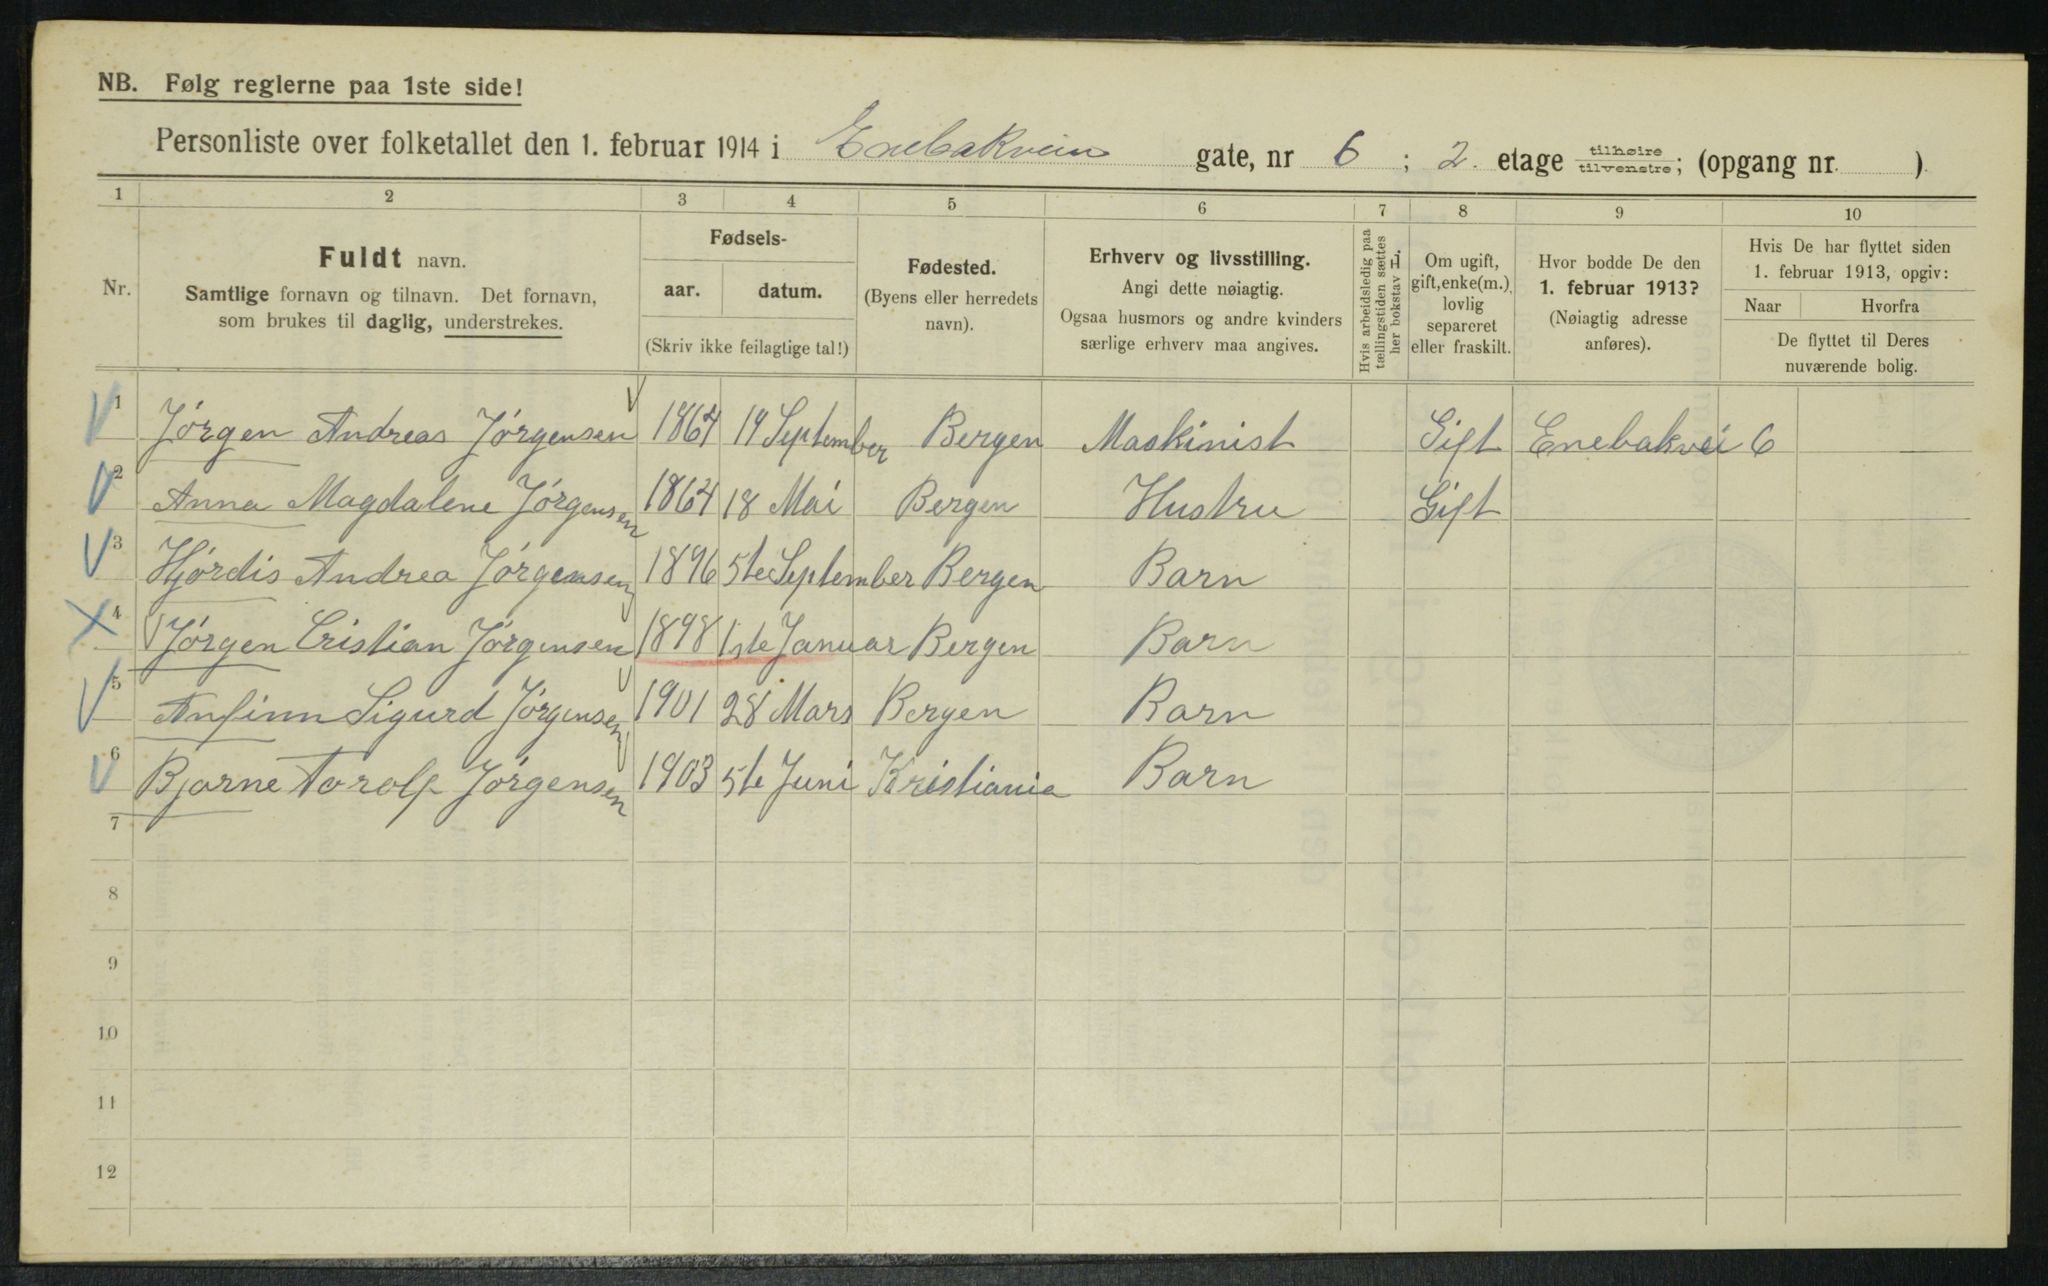 NB. Følg reglerne paa 1ste side!
Personliste over folketallet den 1. februar 1914 i Enebakveien gate, nr 6 ; 2. etage tilhøire tilvenstre; (opgang nr. )
1 2 3 4 5 6 7 8 9 10
Nr.
Fuldt navn.
Samtlige fornavn og tilnavn. Det fornavn,
som brukes til daglig, understrekes.
Fødsels-
aar. datum.
(Skriv ikke feilagtige tal!)
Fødested.
(Byens eller herredets
navn).
Erhverv og livsstilling.
Angi dette nøiagtig.
Ogsaa husmors og andre kvinders
særlige erhverv maa angives.
Hvis arbeidsledig paa
tællingstiden sættes
her bokstav L.
Om ugift,
gift, enke(m.),
lovlig
separeret
eller fraskilt.
Hvor bodde De den
1. februar 1913?
(Nøiagtig adresse
anføres).
Hvis De har flyttet siden
1. februar 1913, opgiv:
Naar Hvorfra
De flyttet til Deres
nuværende bolig.
1 Jørgen Andreas Jørgensen 1864 19 September Bergen Maskinist Gift Enebakvei 6 —
2 Anna Magdalene Jørgensen 1864 18 Mai Bergen Hustru Gift
3 Hjørdis Andrea Jørgensen 1896 5te September Bergen Barn
4 Jørgen Cristian Jørgensen 1898 1ste Januar Bergen Barn
5 Anfinn Sigurd Jørgensen 1901 28 Mars Bergen Barn
6 Bjarne Torolf Jørgensen 1903 5te Juni Kristiania Barn
7
8
9
10
11
12